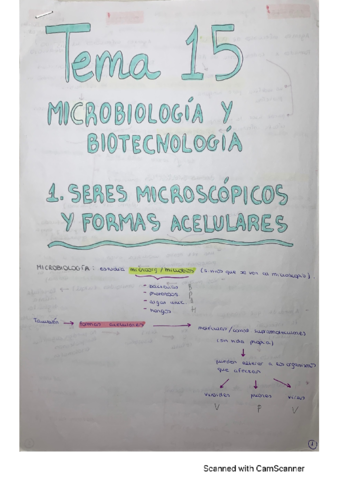 Tema 15
MICROBIOLOGÍA Y
BIOTECNOLOGÍA
1. SERES MICROSCÓPICOS
Y FORMAS ACELULARES
MICROBIOLOGÍA: estudia microorg / microbios (seres que se ven al microscopio)
- bacterias
- protozoos
- algas
- hongos
También → formas acelulares → moléculas /
(sin vida propia)
pueden a los organismos
que
viroides priones virus
V P V
1
Scanned with CamScanner